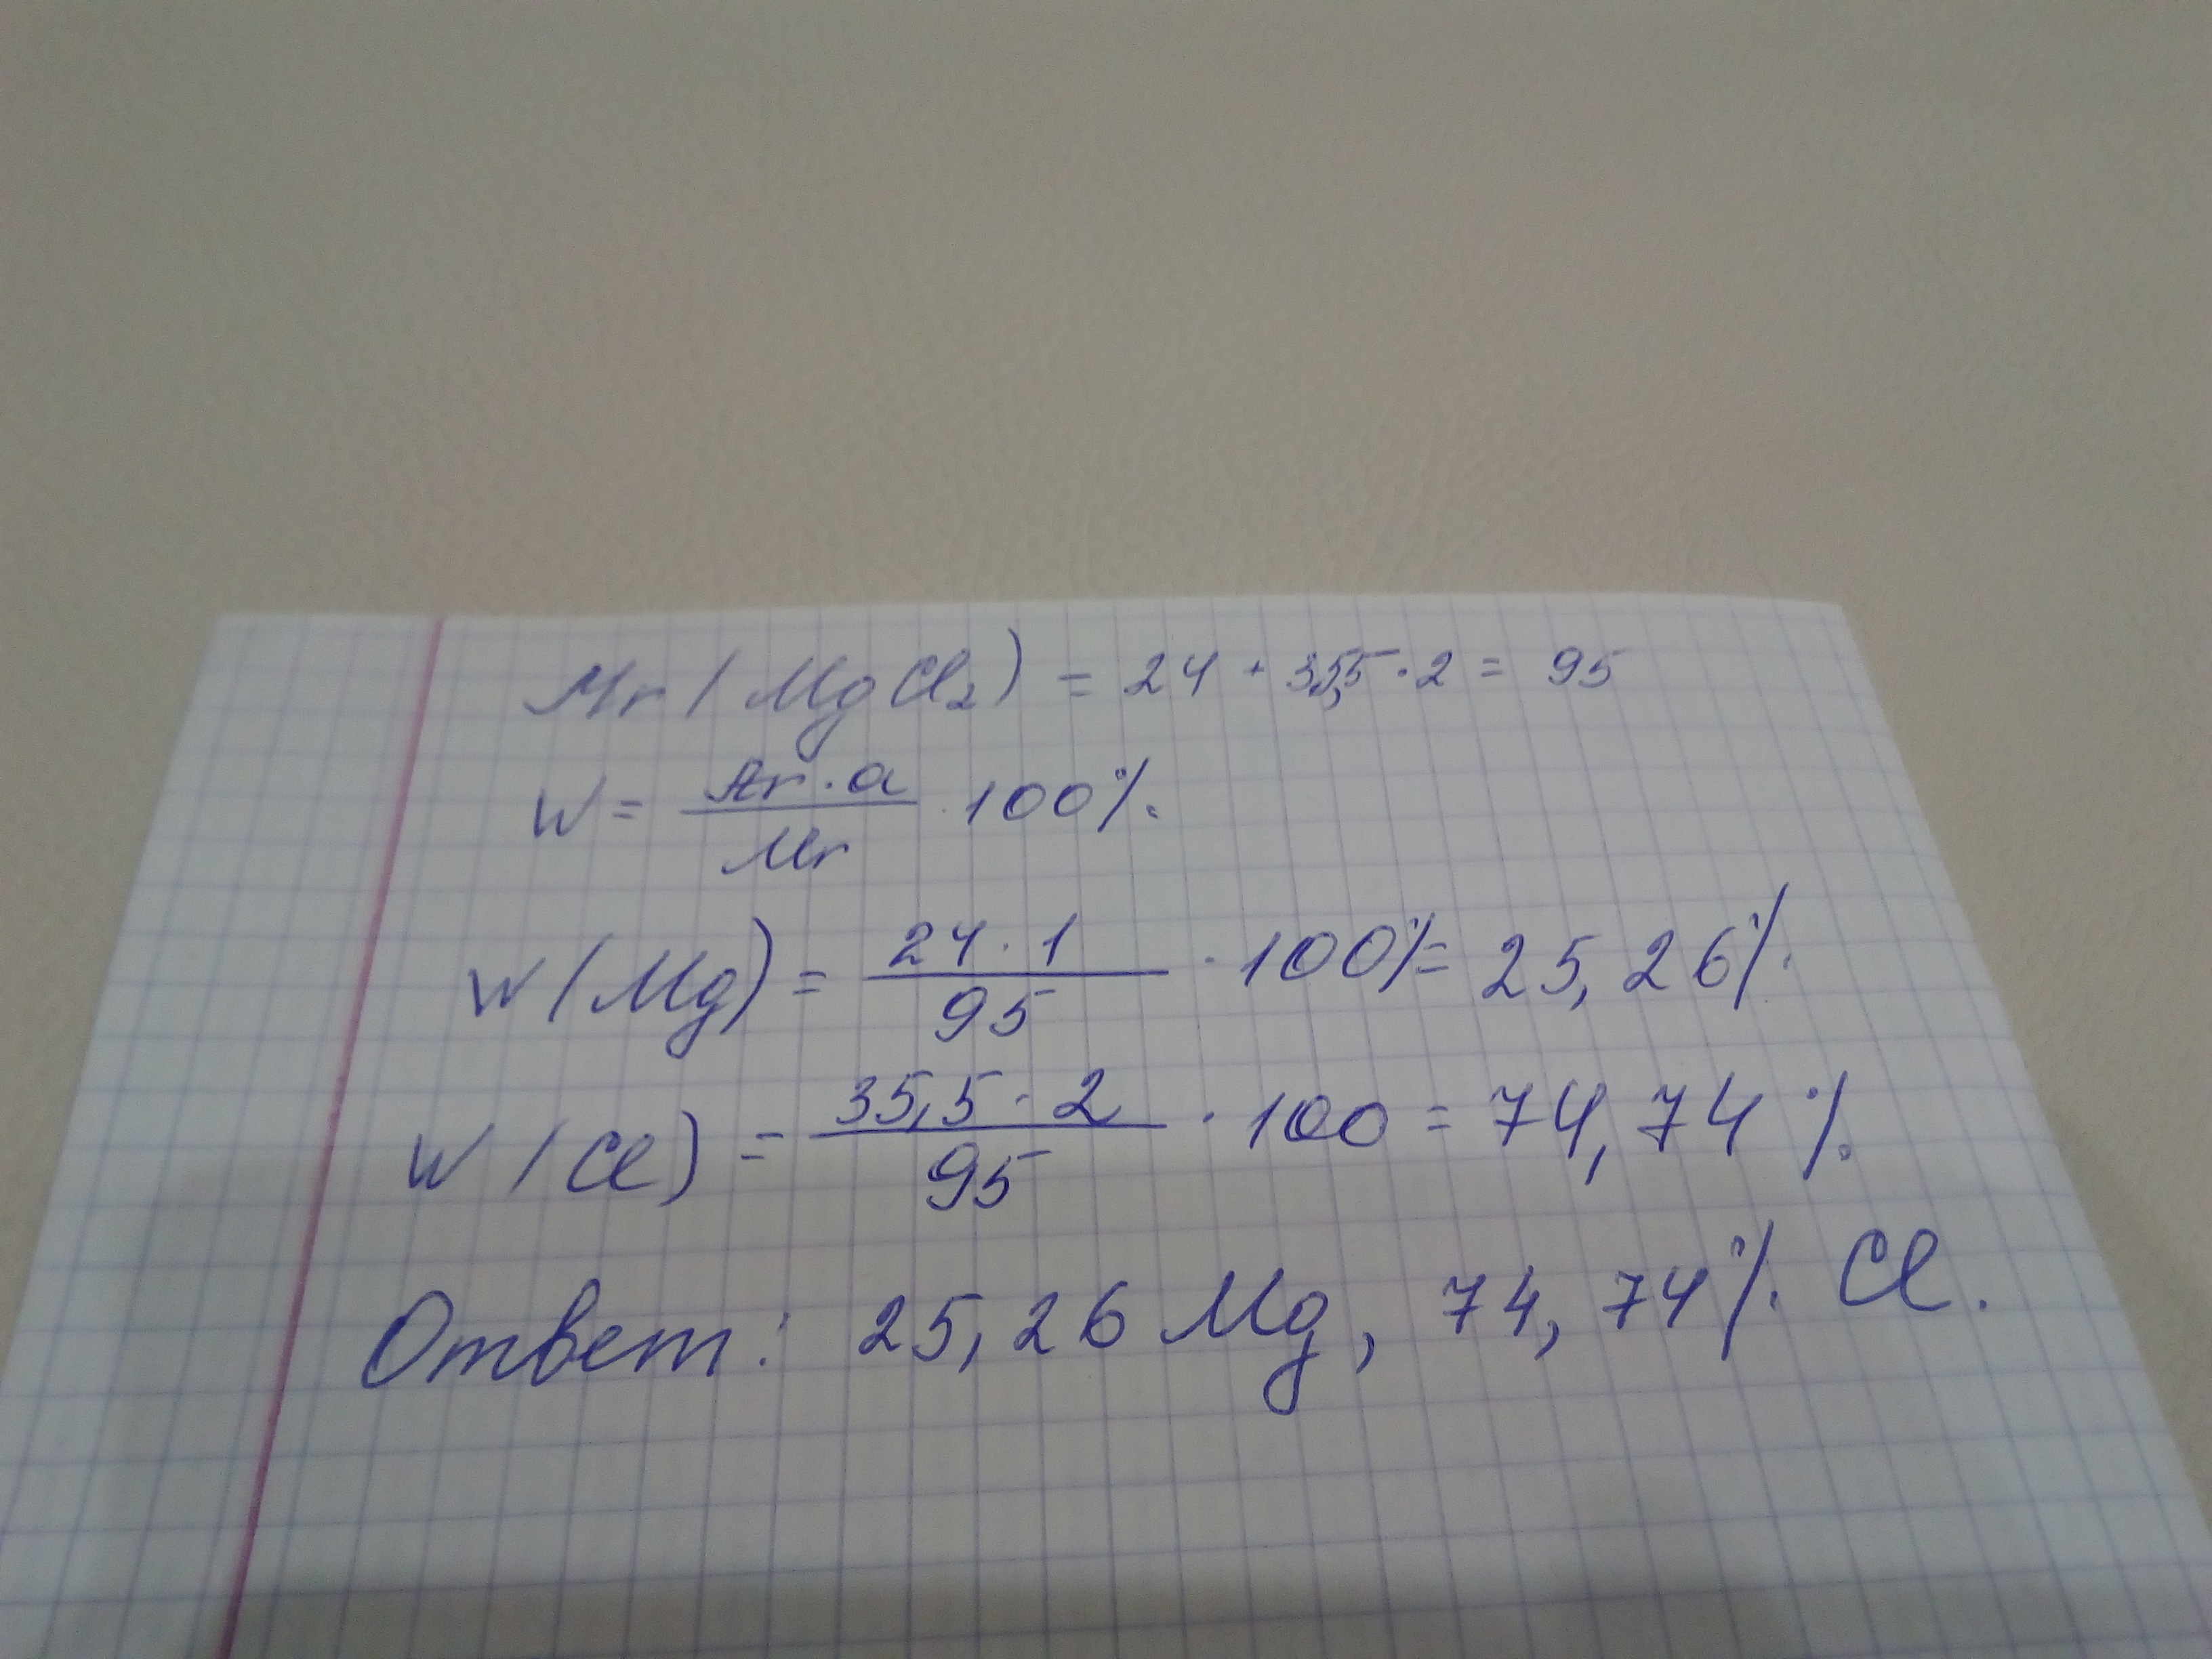 Mr(MgCl₂) = 24 + 35,5 · 2 = 95
W = Ar · a / Mr · 100%
W(Mg) = 24 · 1 / 95 · 100% = 25,26%
W(Cl) = 35,5 · 2 / 95 · 100 = 74,74%
Ответ: 25,26 Mg, 74,74% Cl.